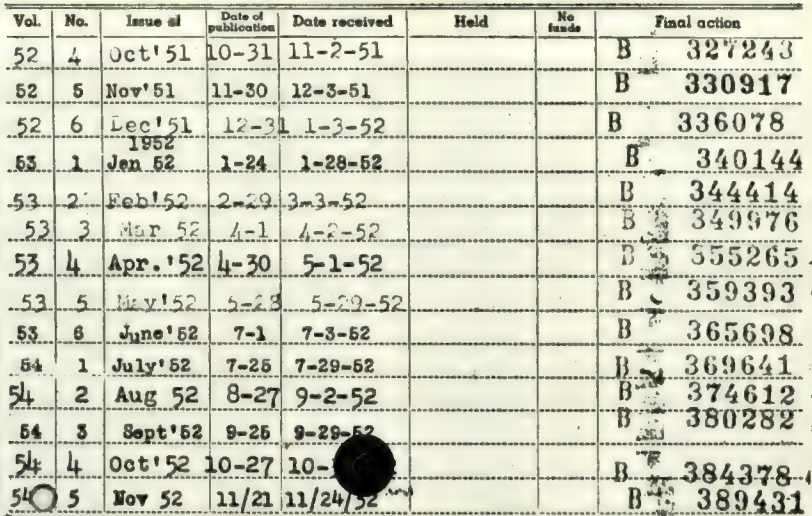 Vol. No. Issue of Date of publication Date received Held No funds Final action
52 4 Oct'51 10-31 11-2-51 B 327243
52 5 Nov'51 11-30 12-3-51 B 330917
52 6 Dec'51 12-31 1-3-52 B 336078
1952
53 1 Jan 52 1-24 1-28-52 B 340144
53 2 Feb'52 2-29 3-3-52 B 344414
53 3 Mar 52 4-1 4-2-52 B 349976
53 4 Apr.'52 4-30 5-1-52 B 355265
53 5 May'52 5-28 5-29-52 B 359393
53 6 June'52 7-1 7-3-52 B 365698
54 1 July'52 7-25 7-29-52 B 369641
54 2 Aug 52 8-27 9-2-52 B 374612
54 3 Sept'52 9-25 9-29-52 B 380282
54 4 Oct'52 10-27 10- B 384378
54 5 Nov 52 11/21 11/24/52 B 389431